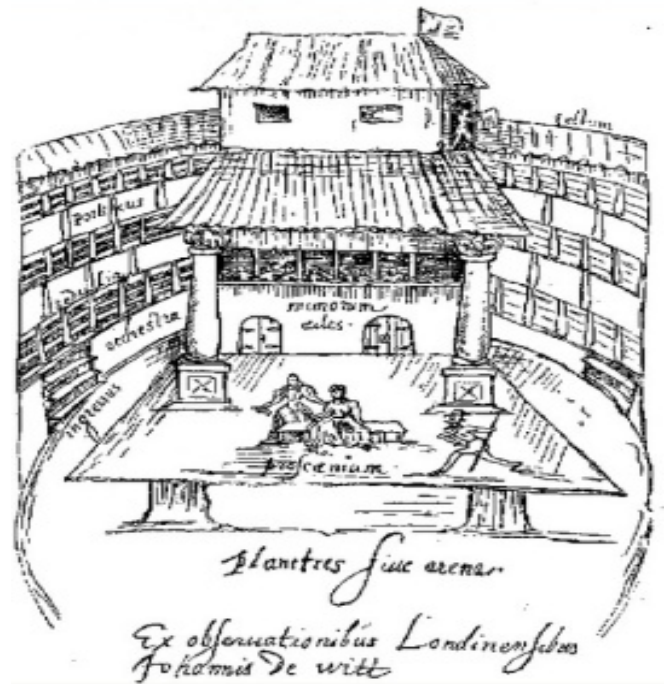 tectum
porticus
sedilia
orchestra
mimorum
ædes.
ingressus
proscænium.
planities sive arena.
Ex observationibus Londinensibus
Johannis De witt